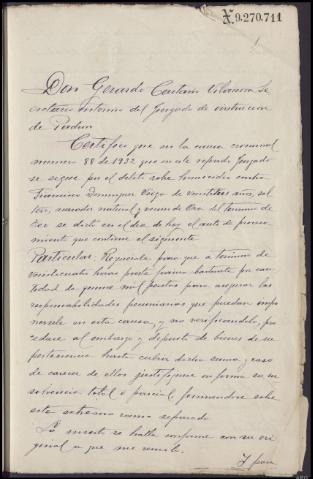 X.9.270.711
1
Don Gerardo Centeno Vilanova Se
cretario interino del Juzgado de instruccion
de
Certifico que en la causa criminal
número 88 de 1932 que en este repetido Juzgado
se sigue por el delito sobre homicidio contra
Francisco Dominguez de veintitres años, sol
tero, natural y vecino de del termino de
se dictó en el dia de hoy el auto de procesa
miento que contiene el siguiente
Particular: Requierase para que a término de
veinticuatro horas preste fianza bastante por can
tidad de quince mil pesetas para asegurar las
responsabilidades pecuniarias que puedan impo
nersele en esta causa, y no verificandolo, pro
cedase al embargo y deposito de bienes de su
pertenencia hasta cubrir dicha suma, y caso
de carecer de ellos justifiquese en forma su in
solvencia total ó parcial, formandose sobre
este extremo ramo separado
Lo inserto se halla conforme con su ori
ginal a que me remito.
Y para